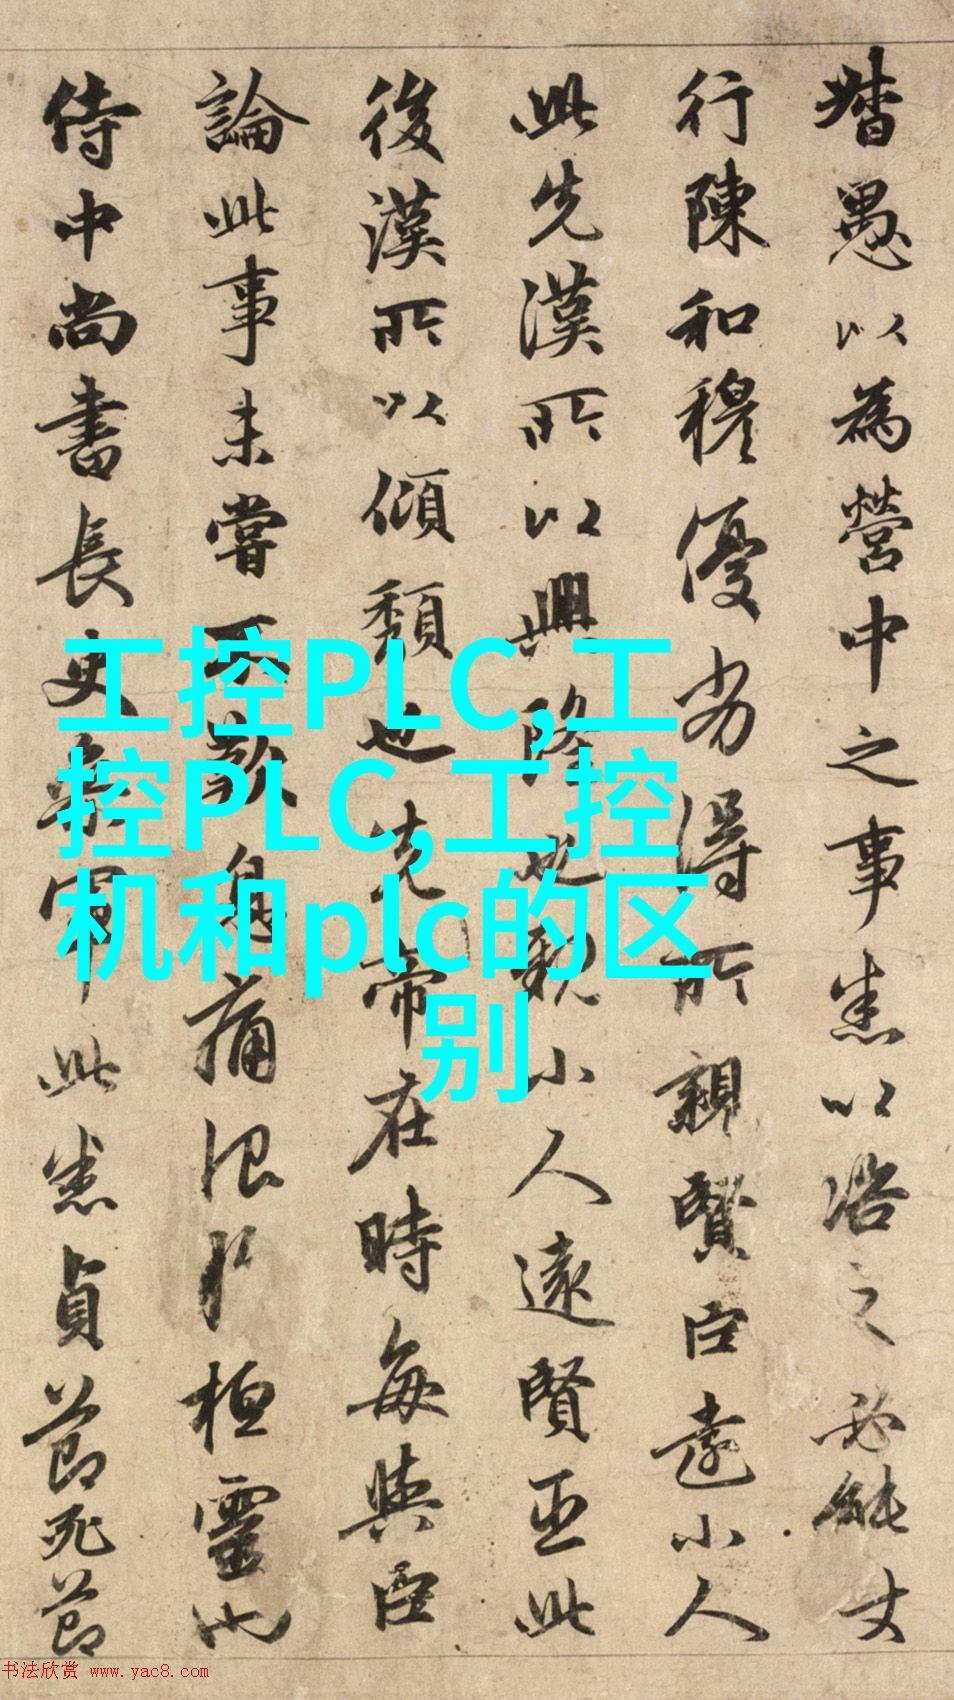 督愚以為營中之事悉以咨之必能丈
行陳和穆優劣得所親賢臣遠小人
此先漢所以興隆也親小人遠賢臣此
後漢所以傾頹也先帝在時每與臣
論此事未嘗不歎息痛恨於桓靈也
侍中尚書長史參軍此悉貞節死節
工控PLC,工
控PLC,工控
机和plc的区
别
书法欣赏 www.yac8.com